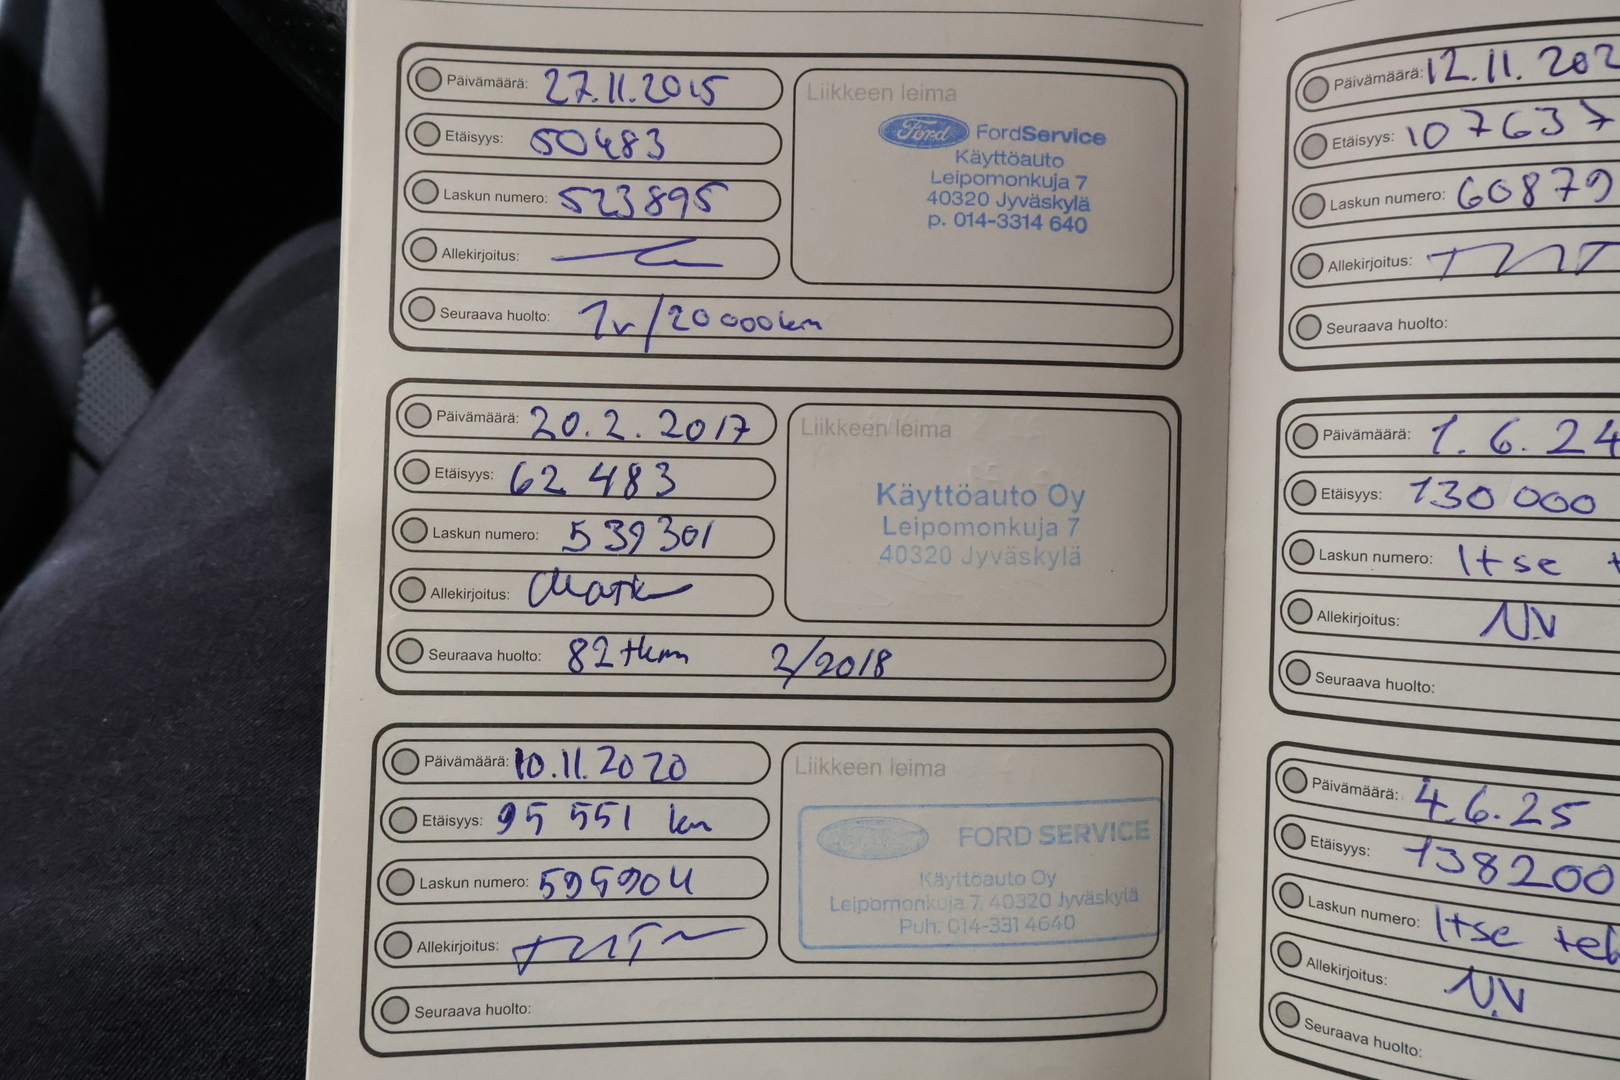 Päivämäärä: 27.11.2015
Etäisyys: 50483
Laskun numero: 523895
Allekirjoitus:
Seuraava huolto: 1v/20 000km
Liikkeen leima
Ford FordService
Käyttöauto
Leipomonkuja 7
40320 Jyväskylä
p. 014-3314 640
Päivämäärä: 20.2.2017
Etäisyys: 62 483
Laskun numero: 539301
Allekirjoitus:
Seuraava huolto: 82tkm 2/2018
Liikkeen leima
Käyttöauto Oy
Leipomonkuja 7
40320 Jyväskylä
Päivämäärä: 10.11.2020
Etäisyys: 95 551 km
Laskun numero: 595904
Allekirjoitus:
Seuraava huolto:
Liikkeen leima
FORD SERVICE
Käyttöauto Oy
Leipomonkuja 7, 40320 Jyväskylä
Puh. 014-331 4640
Päivämäärä: 12.11.202
Etäisyys: 107637
Laskun numero: 60879
Allekirjoitus:
Seuraava huolto:
Päivämäärä: 1.6.24
Etäisyys: 130 000
Laskun numero: Itse
Allekirjoitus: N.V
Seuraava huolto:
Päivämäärä: 4.6.25
Etäisyys: 138200
Laskun numero: Itse
Allekirjoitus: N.V
Seuraava huolto: